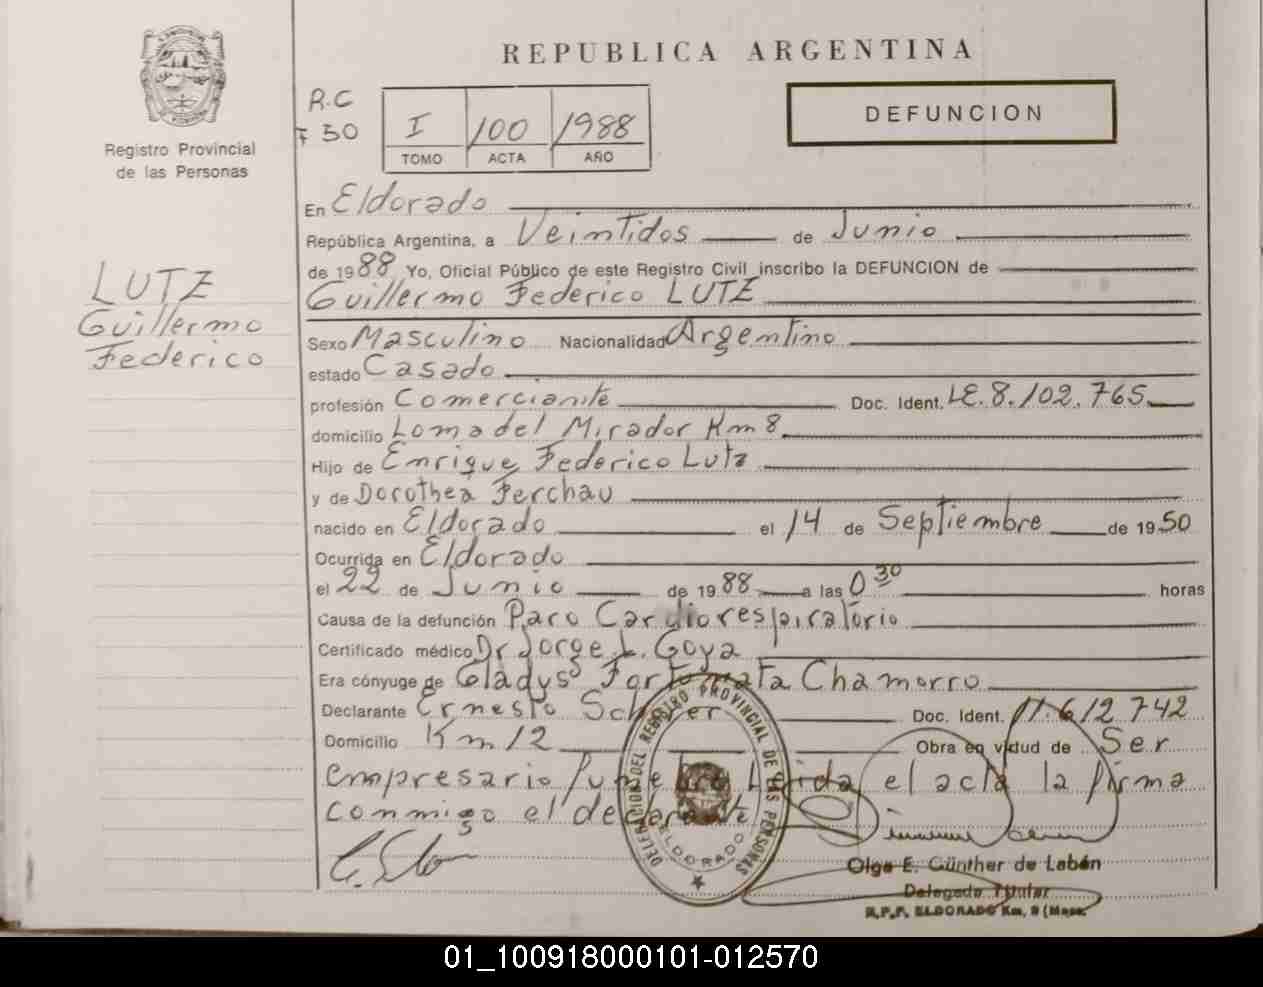 REPUBLICA ARGENTINA
Registro Provincial
de las Personas
R.C
F 50
I 100 1988
TOMO ACTA AÑO
DEFUNCION
LUTZ
Guillermo
Federico
En Eldorado
República Argentina, a Veintidos de Junio
de 1988 Yo, Oficial Público de este Registro Civil inscribo la DEFUNCION de
Guillermo Federico LUTZ
Sexo Masculino Nacionalidad Argentino
estado Casado
profesión Comerciante Doc. Ident. LE.8.102.765
domicilio Loma del Mirador Km 8
Hijo de Enrique Federico Lutz
y de Dorothea Ferchau
nacido en Eldorado el 14 de Septiembre de 1950
Ocurrida en Eldorado
el 22 de Junio de 1988 a las 0 30 horas
Causa de la defunción Paro Cardiorespiratorio
Certificado médico Dr Jorge L. Goya
Era cónyuge de Gladys Fortunata Chamorro
Declarante Ernesto Doc. Ident. 11.612.742
Domicilio Km 12 Obra en vidud de Ser
empresario Funebre Leida el acta la firma
conmigo el declarante
DELEGACION DEL REGISTRO PROVINCIAL DE LAS PERSONAS
ELDORADO
Olga E. Günther de Labán
Delegada Titular
R.P.P. ELDORADO Km. 9 (Mnes.
01_100918000101-012570